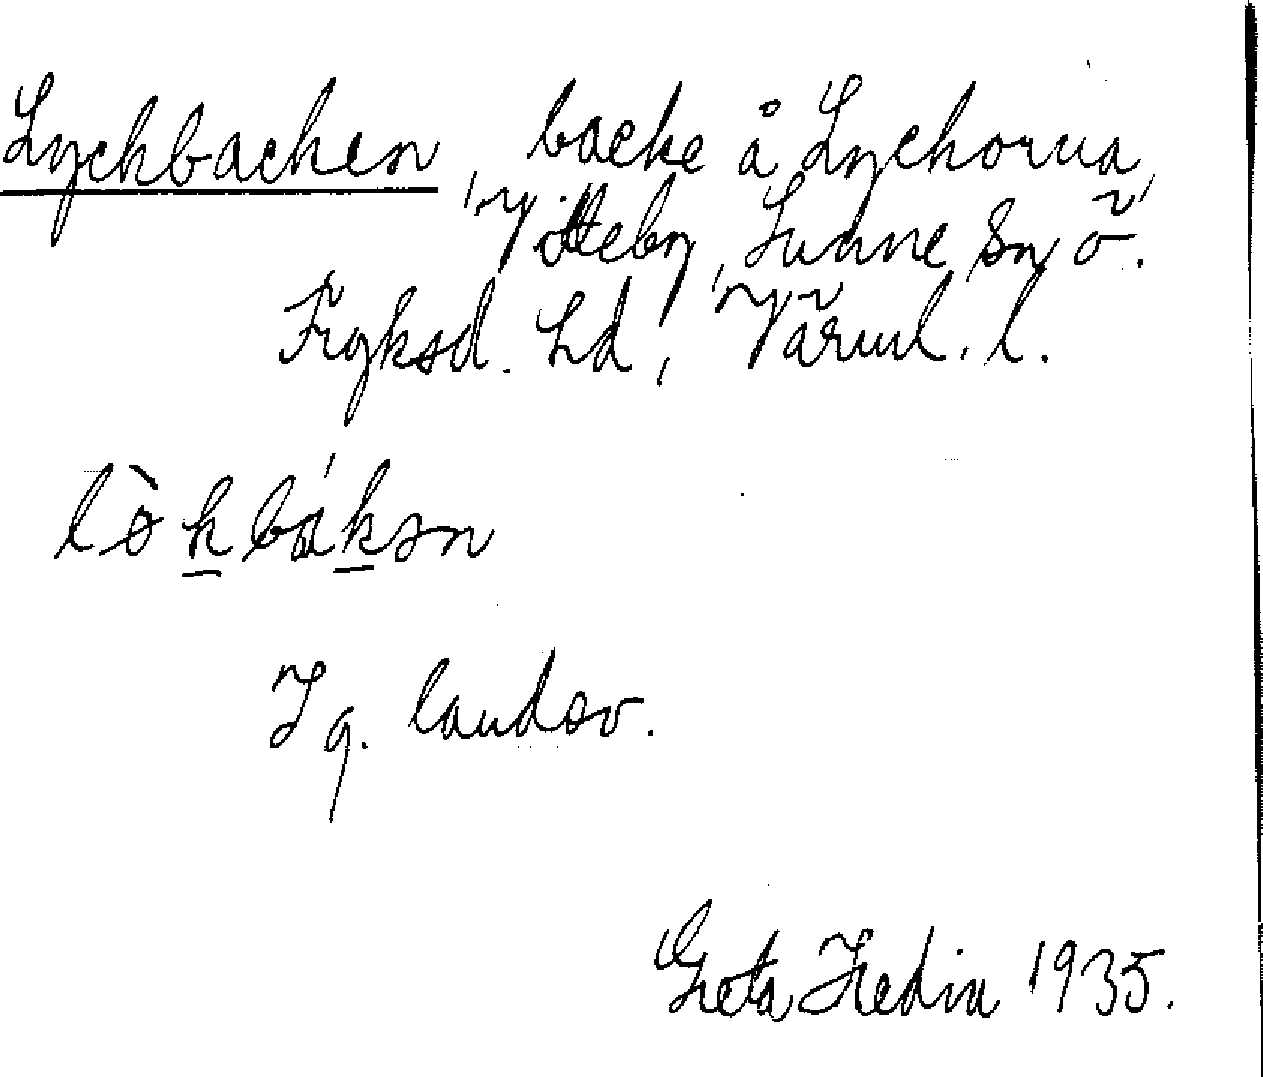 Lyckbacken, backe å Lyckorna,
Vitteby, Sunne sn ö.
Fryksd. hd, Värml. l.
lò̵kbákən
I g. landsv.
Greta Hedin 1935.